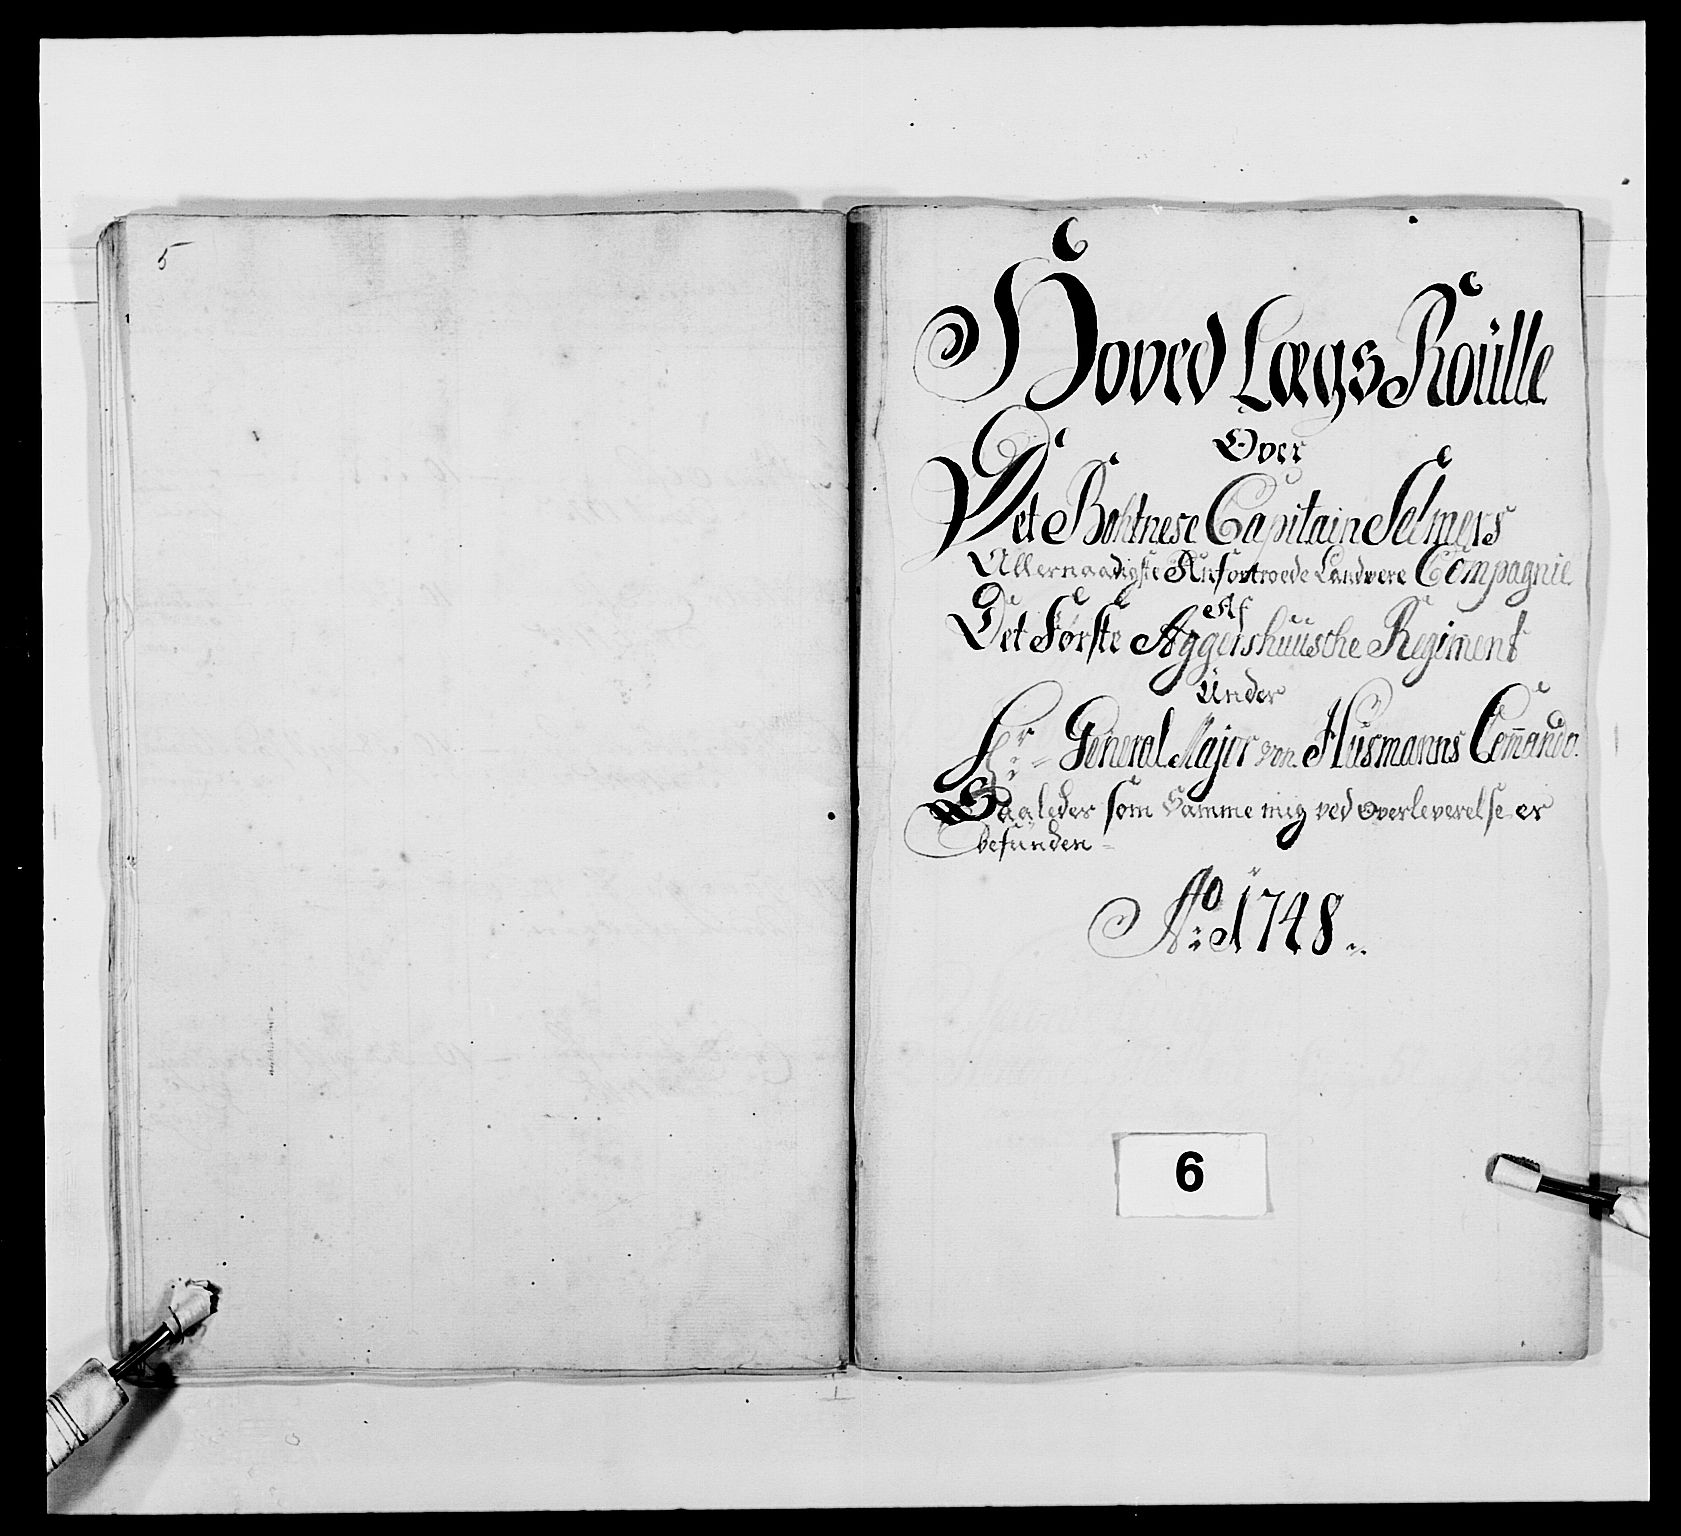 5
Hoved Lægs Roülle
Over
Det Bohtnese Capitain Selmers
Allernaadigste Anfortroede Landvere Compagnie
Af
Det Første Aggershuüsche Regiment
Under
Hr: General Major von Husmanns Com̄ando.
Saaledes som Samme mig ved Overleverelse er
befünden
Ao: 1748
6